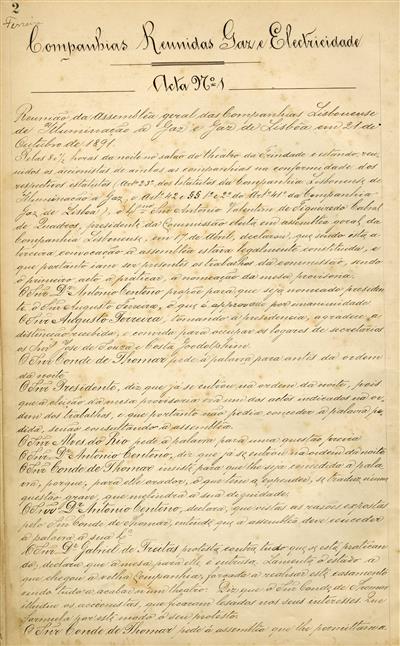 2
Ferreira
Companhias Reunidas Gaz e Electricidade
Acta Nº 1
Reunião da Assembléa geral das Companhias Lisbonense
de Illuminação a Gaz e Gaz de Lisbôa em 21 de
Outubro de 1891.
Pelas 8 1/2 horas da noite no salão do theatro da Trindade e estando, reu-
nidos os accionistas de ambas as companhias na conformidade dos
respectivos estatutos (Artº 23º dos Estatutos da Companhia Lisbonense de
Illuminação a Gaz, e Artº 42 e §§ 1º e 2º do Artº 41º da Companhia
Gaz de Lisbôa), o Illmo e Exmo Antonio Valentim de Figueiredo Cabral
de Quadros, presidente da Commissão eleita em assembléa geral da
Companhia Lisbonense, em 17 de Abril, declarou, que sendo esta a
terceira convocação a assembléa estava legalmente constituida, e
que portanto cabe aos presentes os trabalhos da commissão, sendo
o primeiro acto a praticar, a nomeação da mesa provisoria.
O Snr. Dr. Antonio Centeno propõe para que seja nomeado presiden-
te o Snr Augusto Ferreira, o que é approvado por unanimidade
O Snr Augusto Ferreira, tomando a presidencia, agradece a
distincção recebida, e convida para occupar os logares de secretarios
os Snrs José de Souza e Costa Goodolphim.
O Snr Conde de Thomar pede a palavra para antes da ordem
da noite
O Snr Presidente, diz que já se entrou na ordem da noite, pois
que a eleição da mesa provisoria era um dos actos indicados na or-
dem dos trabalhos, e que portanto não podia conceder a palavra pe-
dida, senão consultando a assembléa.
O Snr Alves do Rio pede a palavra para uma questão previa
O Snr Dr. Antonio Centeno, diz que já se entrou na ordem da noite
O Snr Conde de Thomar insiste para que lhe seja concedida a pala-
vra, porque, para elle orador, o que tem a expender, se traduz n'uma
questão grave, que melindra a sua dignidade.
O Snr Dr. Antonio Centeno, declara, que vistas as razões expostas
pelo Snr Conde de Thomar, entende que a assembléa deve conceder
a palavra a sua Exª
O Snr Dr. Gabriel de Freitas protesta contra tudo que se está pratican-
do, declara que a mesa para elle é intrusa. Lamenta o estado a
que chegou a velha Companhia, forçada a realisar este casamento
indo tudo a acabar n'um theatro. Diz que o Snr Conde de Thomar
illudiu os accionistas, que ficaram lesados nos seus interesses. Que
formula por este modo o seu protesto.
O Snr Conde de Thomar pede á assembléa que lhe permitta uma